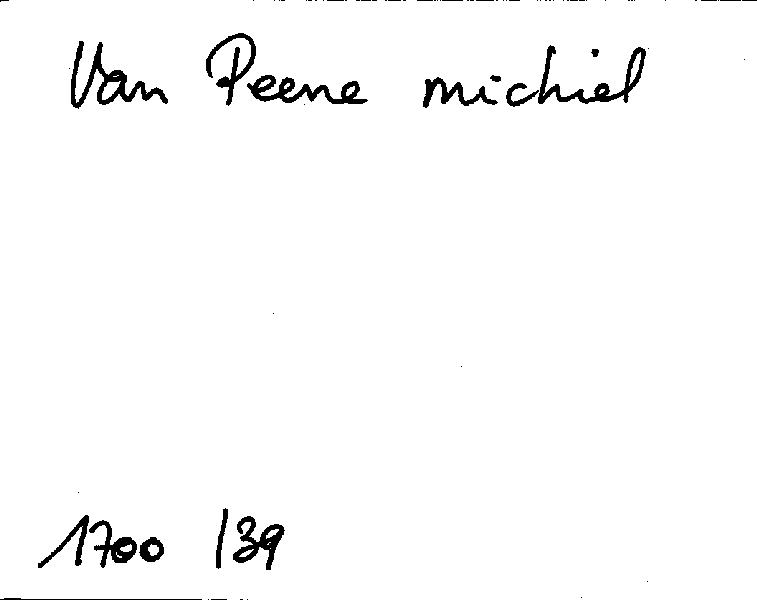 Van Peene michiel
1700 /39